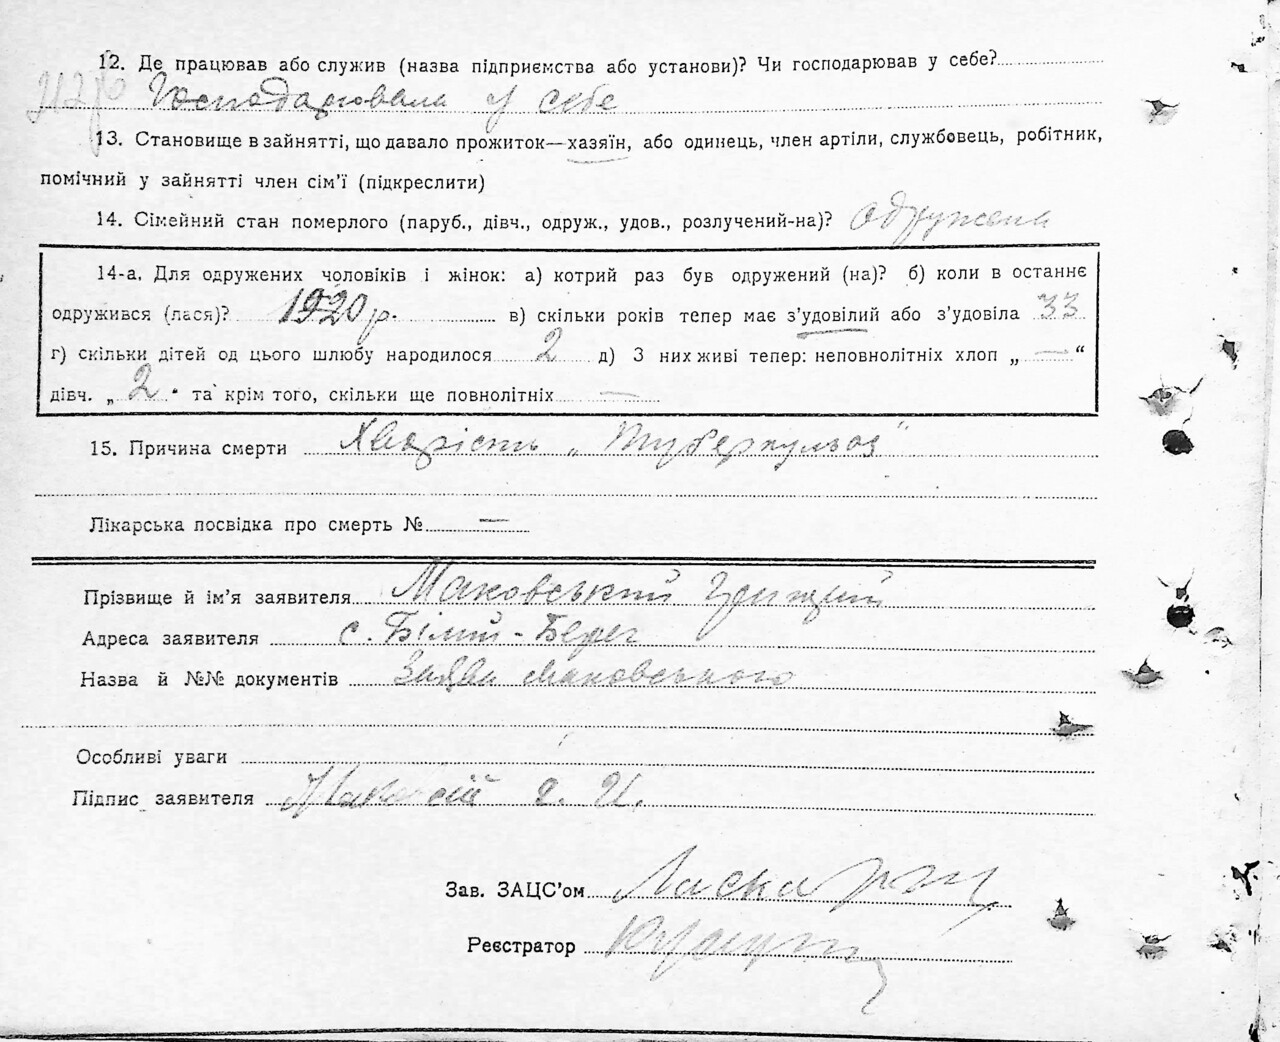 12. Де працював або служив (назва підприємства або установи)? Чи господарював у себе?
Господарювала у себе
13. Становище в зайнятті, що давало прожиток—хазяїн, або одинець, член артілі, службовець, робітник,
помічний у зайнятті член сім'ї (підкреслити)
14. Сімейний стан померлого (паруб., дівч., одруж., удов., розлучений-на)? одружена
14-а. Для одружених чоловіків і жінок: а) котрий раз був одружений (на)? б) коли в останнє
одружився (лася)? 1920 р. в) скільки років тепер має з'удовілий або з'удовіла 33
г) скільки дітей од цього шлюбу народилося 2 д) З них живі тепер: неповнолітніх хлоп „ — “
дівч. „ 2 та крім того, скільки ще повнолітніх —
15. Причина смерти Хварість „Туберкульоз"
Лікарська посвідка про смерть № —
Прізвище й ім'я заявителя Маковський
Адреса заявителя с. Білий-Берег
Назва й №№ документів Заява Маковського
Особливі уваги
Підпис заявителя
Зав. ЗАЦС'ом
Реєстратор